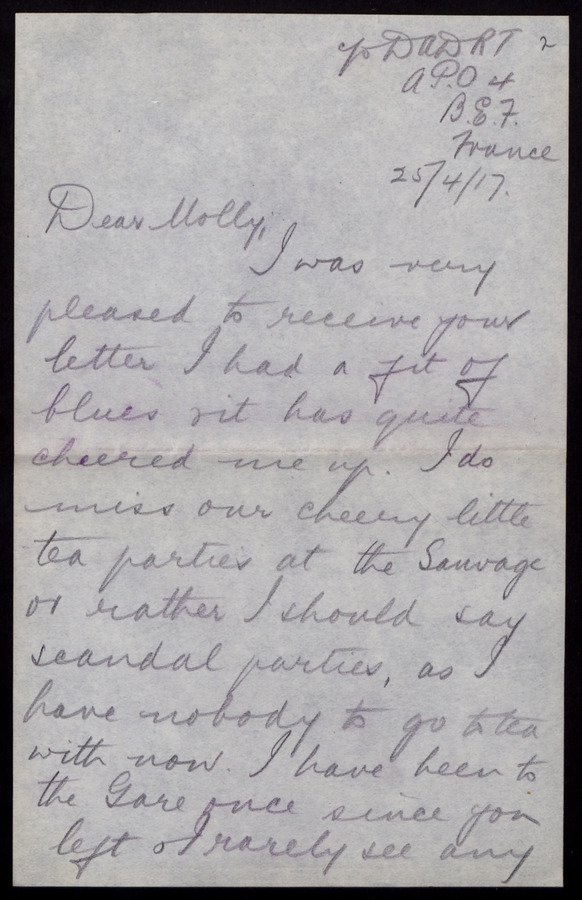 c/o DADRT 2
A.P.O 4
B.E.F.
France
25/4/17.
Dear Molly,
I was very
pleased to receive your
letter I had a fit of
blues & it has quite
cheered me up. I do
miss our cheery little
tea parties at the Sauvage
or rather I should say
scandal parties, as I
have nobody to go to tea
with now. I have been to
the Gare once since you
left & I rarely see any